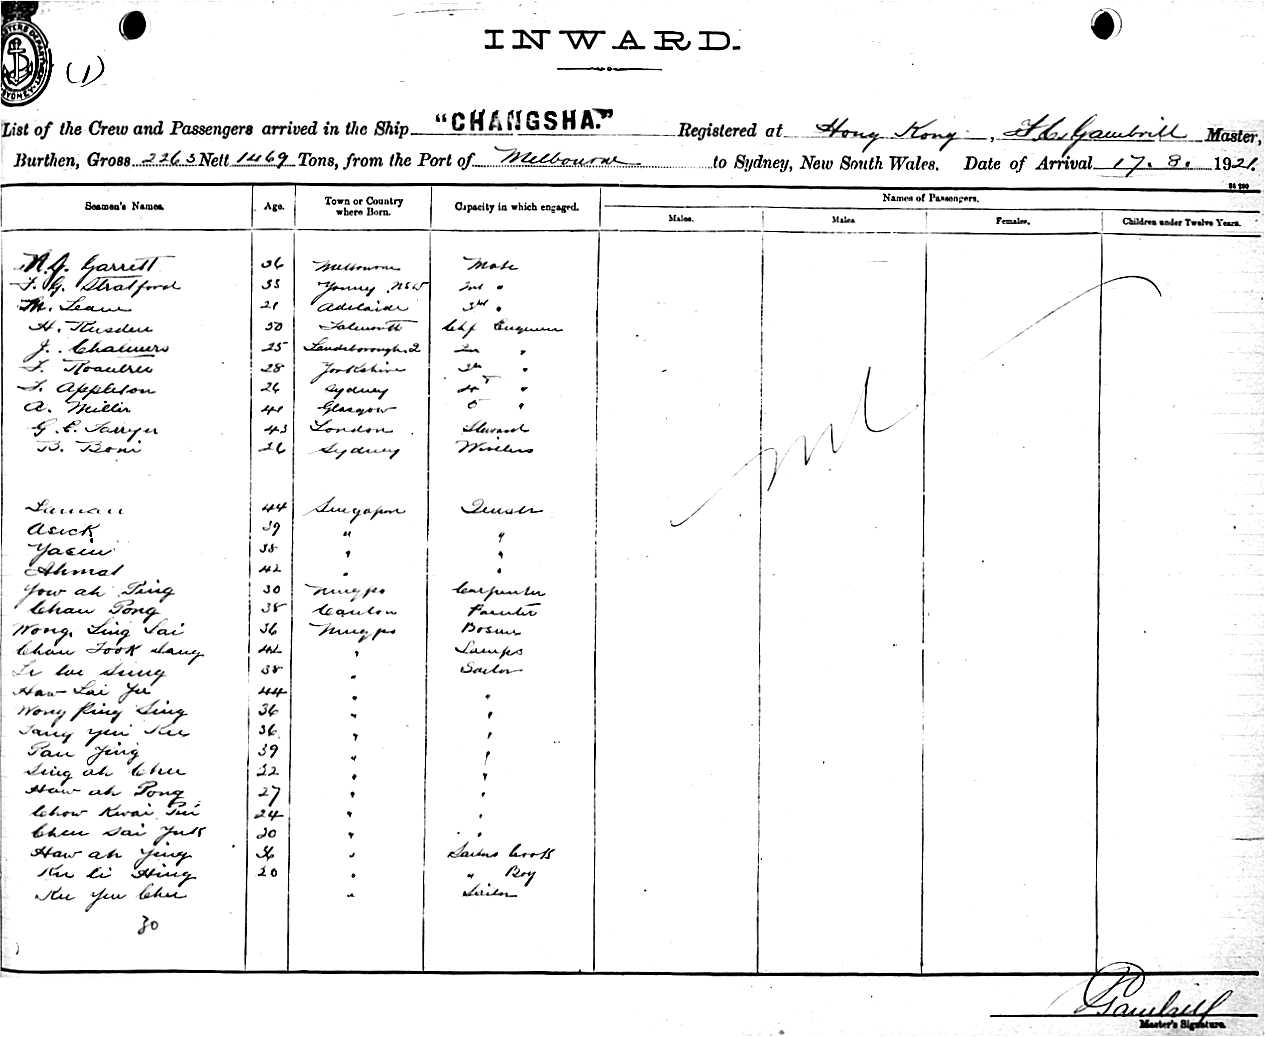 INWARD.
(1)
List of the Crew and Passengers arrived in the Ship "CHANGSHA." Registered at Hong Kong, F. C. Gambrill Master,
Burthen, Gross 2263 Nett 1469 Tons, from the Port of Melbourne to Sydney, New South Wales. Date of Arrival 17. 8. 1921.
Seamen's Names. Age. Town or Country where Born. Capacity in which engaged. Names of Passengers.
Males. Males Females. Children under Twelve Years.
Garrett 36 Melbourne Mate
F. G. Stratford 35 Young NSW 2nd "
M. 21 Adelaide 3rd "
H. 50 Falmouth Chf Engineer
J. Chalmers 25 Landsborough 2n "
F. 28 Yorkshire 3rd "
F. Appleton 26 Sydney 4t "
A. Miller 41 Glasgow 5 "
G. C. 43 London Steward
B. Boni 26 Sydney Wireless
nil
44 Singapore
Asick 39 " "
Yasin 38 " "
Ahmat 42 " "
Yow ah Ping 30 Ningpo Carpenter
Chan Pong 38 Canton Painter
Wong Ling Sai 36 Ningpo Bosun
Chan Fook 42 " Lamps
Sung 38 " Sailor
Haw Lai Yu 44 " "
Wong King Sing 36 " "
Yang Yin 36 " "
Pan Jing 39 " "
Sing ah Chu 32 " "
Haw ah Pong 27 " "
Chow Kwai 24 " "
Chen Sai 30 " "
Haw ah Ying 36 " Sailors Cook
Ku Li Hing 20 " " Boy
Ku Yeu Chu " Sailor
30
Gambrill
Master's Signature.